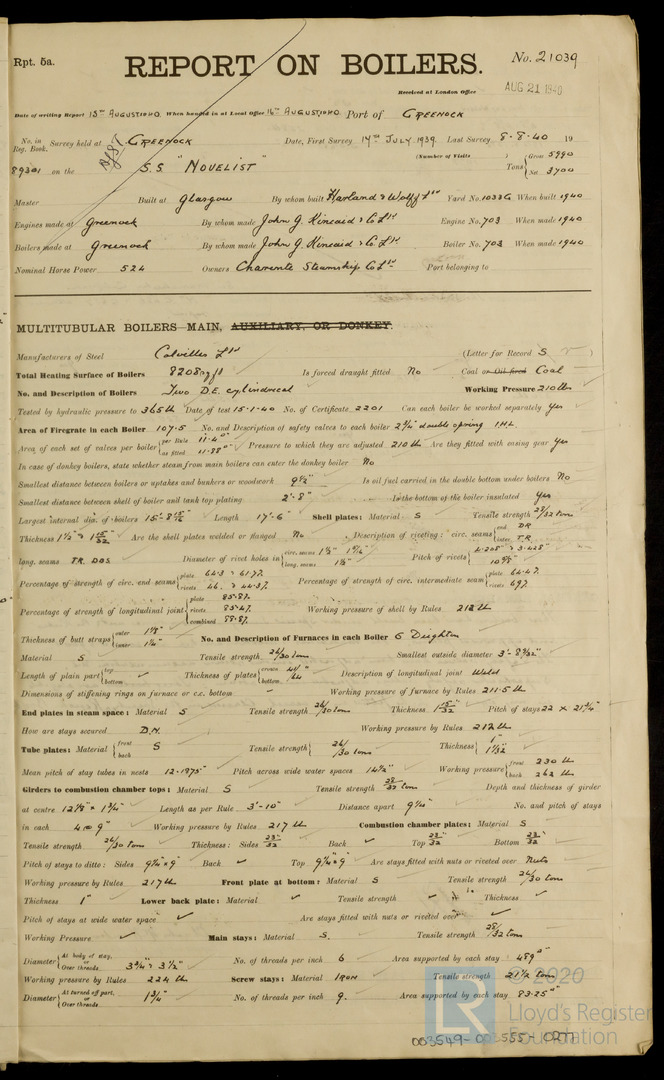 Rpt. 5a.
REPORT ON BOILERS.
No. 21039
Received at London Office AUG 21 1940
Date of writing Report 13TH AUGUST 1940. When handed in at Local Office 16TH AUGUST 1940 Port of GREENOCK
No. in Reg. Book. Survey held at GREENOCK Date, First Survey 14TH JULY 1939. Last Survey 8-8-40 19
(Number of Visits )
89301 on the S.S. "NOVELIST" Tons { Gross 5990 Net 3700
Master Built at Glasgow By whom built Harland & Wolff Ltd Yard No. 1033G When built 1940
Engines made at Greenock By whom made John G. Kincaid & Co Ltd Engine No. 703 When made 1940
Boilers made at Greenock By whom made John G. Kincaid & Co Ltd Boiler No. 703 When made 1940
Nominal Horse Power 524 Owners Charente Steamship Co Ltd Port belonging to
MULTITUBULAR BOILERS MAIN, AUXILIARY, OR DONKEY.
Manufacturers of Steel Colvilles Ltd (Letter for Record S )
Total Heating Surface of Boilers 8208 sq ft Is forced draught fitted No Coal or Oil fired Coal
No. and Description of Boilers Two D.E. cylindrical Working Pressure 210 lb
Tested by hydraulic pressure to 365 lb Date of test 15-1-40 No. of Certificate 2201 Can each boiler be worked separately Yes
Area of Firegrate in each Boiler 107.5 No. and Description of safety valves to each boiler 2 3/4" double spring I.H.L.
Area of each set of valves per boiler { per Rule 11.4" as fitted 11.88" Pressure to which they are adjusted 210 lb Are they fitted with easing gear Yes
In case of donkey boilers, state whether steam from main boilers can enter the donkey boiler No
Smallest distance between boilers or uptakes and bunkers or woodwork 9 1/2" Is oil fuel carried in the double bottom under boilers No
Smallest distance between shell of boiler and tank top plating 2'-8" Is the bottom of the boiler insulated Yes
Largest internal dia. of boilers 15'-8 15/16" Length 17'-6" Shell plates: Material S Tensile strength 28/32 tons
Thickness 1 1/2" & 1 15/32" Are the shell plates welded or flanged No Description of riveting: circ. seams { end DR inter. T.R.
long. seams T.R. D.B.S. Diameter of rivet holes in { circ. seams long. seams 1 1/2" Pitch of rivets { 4.208" & 3.428"
Percentage of strength of circ. end seams { plate 64.3 & 61.7% rivets 46. & 44.3% Percentage of strength of circ. intermediate seam { plate 64.4% rivets 69%
Percentage of strength of longitudinal joint { plate 85.8% rivets 85.4% combined 88.8% Working pressure of shell by Rules 212 lb
Thickness of butt straps { outer 1 1/8" inner 1 1/4" No. and Description of Furnaces in each Boiler 6 Deighton
Material S Tensile strength 26/30 tons Smallest outside diameter 3'-8 9/32"
Length of plain part { top bottom Thickness of plates { crown bottom Description of longitudinal joint Weld
Dimensions of stiffening rings on furnace or c.c. bottom Working pressure of furnace by Rules 211.5 lb
End plates in steam space: Material S Tensile strength 26/30 tons Thickness 1 15/32 Pitch of stays 22 x 21 3/4"
How are stays secured D.N. Working pressure by Rules 212 lb
Tube plates: Material { front back S Tensile strength { 26/30 tons Thickness { 1" 1/32"
Mean pitch of stay tubes in nests 12.1875 Pitch across wide water spaces 14 1/2" Working pressure { front 230 lb back 262 lb
Girders to combustion chamber tops: Material S Tensile strength 28/32 tons Depth and thickness of girder
at centre 12 1/8" x 1 3/4" Length as per Rule 3'-10" Distance apart 9 1/4" No. and pitch of stays
in each 4 @ 9" Working pressure by Rules 217 lb Combustion chamber plates: Material S
Tensile strength 26/30 tons Thickness: Sides 23/32 Back Top 23/32 Bottom 23/32
Pitch of stays to ditto: Sides 9 1/4 x 9" Back Top 9 1/4 x 9" Are stays fitted with nuts or riveted over Nuts
Working pressure by Rules 217 lb Front plate at bottom: Material S Tensile strength 26/30 tons
Thickness 1" Lower back plate: Material Tensile strength Thickness
Pitch of stays at wide water space Are stays fitted with nuts or riveted over
Working Pressure Main stays: Material S. Tensile strength 28/32 tons
Diameter { At body of stay, or Over threads. 3 3/4" & 3 1/2" No. of threads per inch 6 Area supported by each stay 489"
Working pressure by Rules 224 lb Screw stays: Material IRON Tensile strength 21 1/2 tons
Diameter { At turned off part, or Over threads. 1 3/4" No. of threads per inch 9. Area supported by each stay 83.25"
LR
© 2020
Lloyd's Register
Foundation
003549-003555-0277